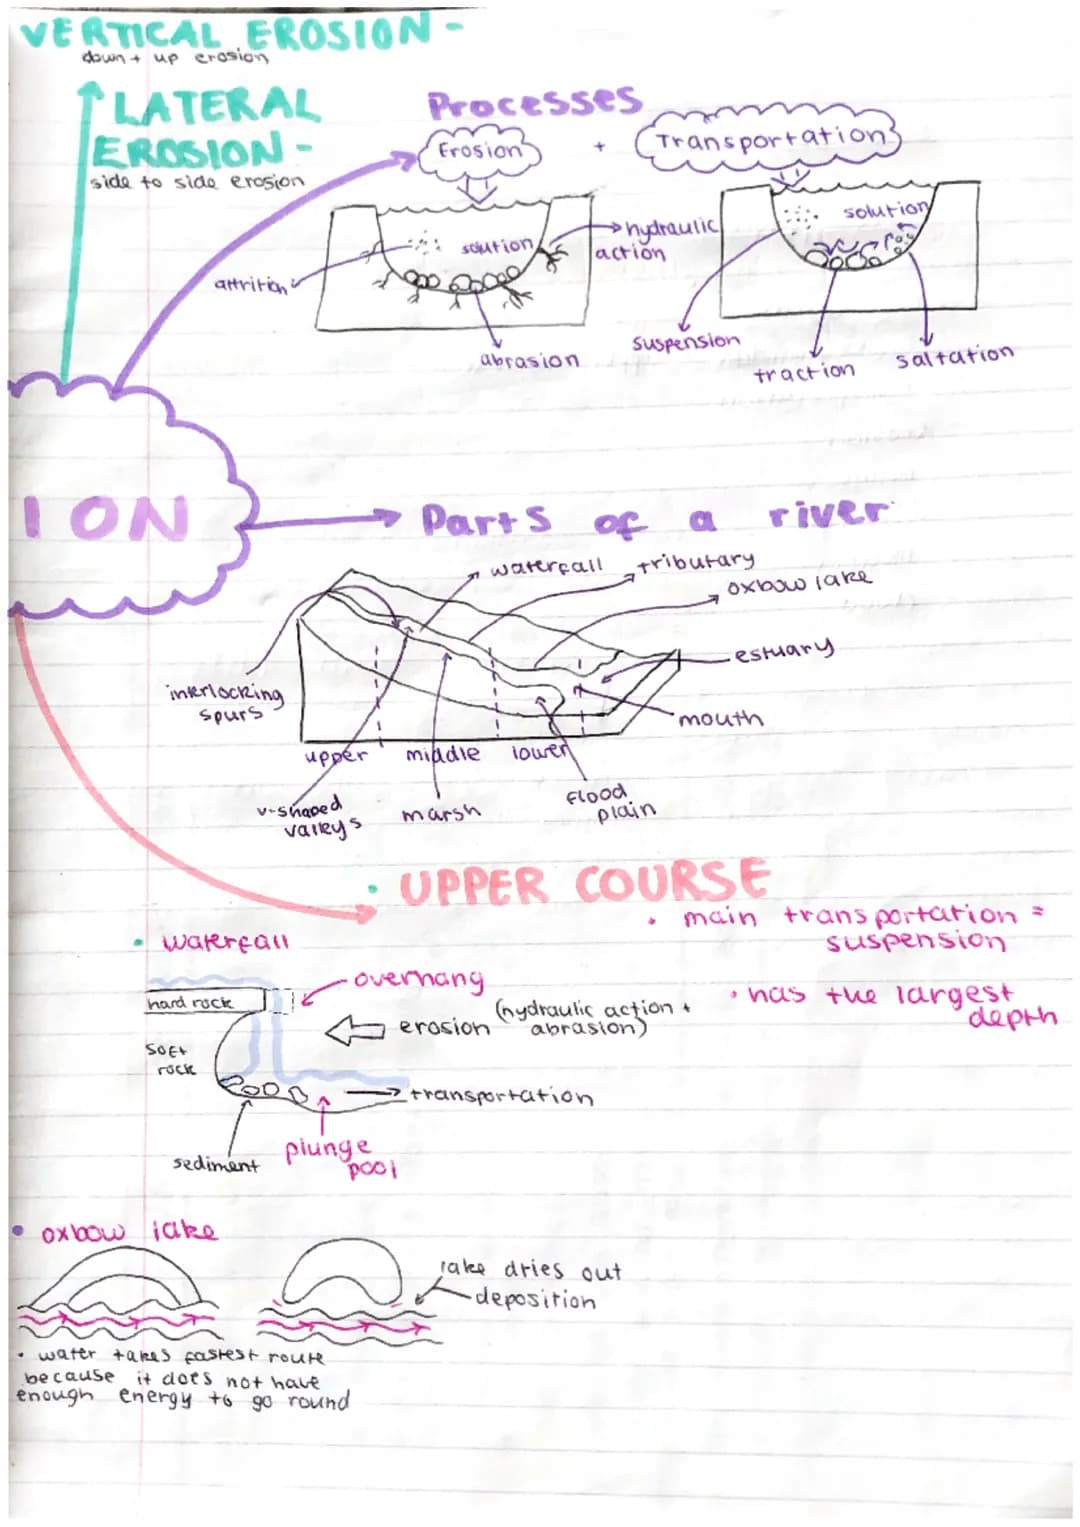 VERTICAL EROSION -
down + up erosion
LATERAL
EROSION -
side to side erosion
Processes
Erosion
+
Transportation
solution
hydraulic
action
attrition
abrasion
solution
suspension
traction
saltation
ION
Parts of a river
waterfall
tributary
oxbow lake
estuary
interlocking
spurs
mouth
upper
middle
lower
v-shaped
valleys
marsh
flood
plain
• UPPER COURSE
• main transportation =
suspension
• waterfall
overhang
• has the largest
depth
hard rock
erosion (hydraulic action +
abrasion)
soft
rock
transportation
sediment
plunge
pool
• oxbow lake
lake dries out
deposition
• water takes fastest route
because it does not have
enough energy to go round